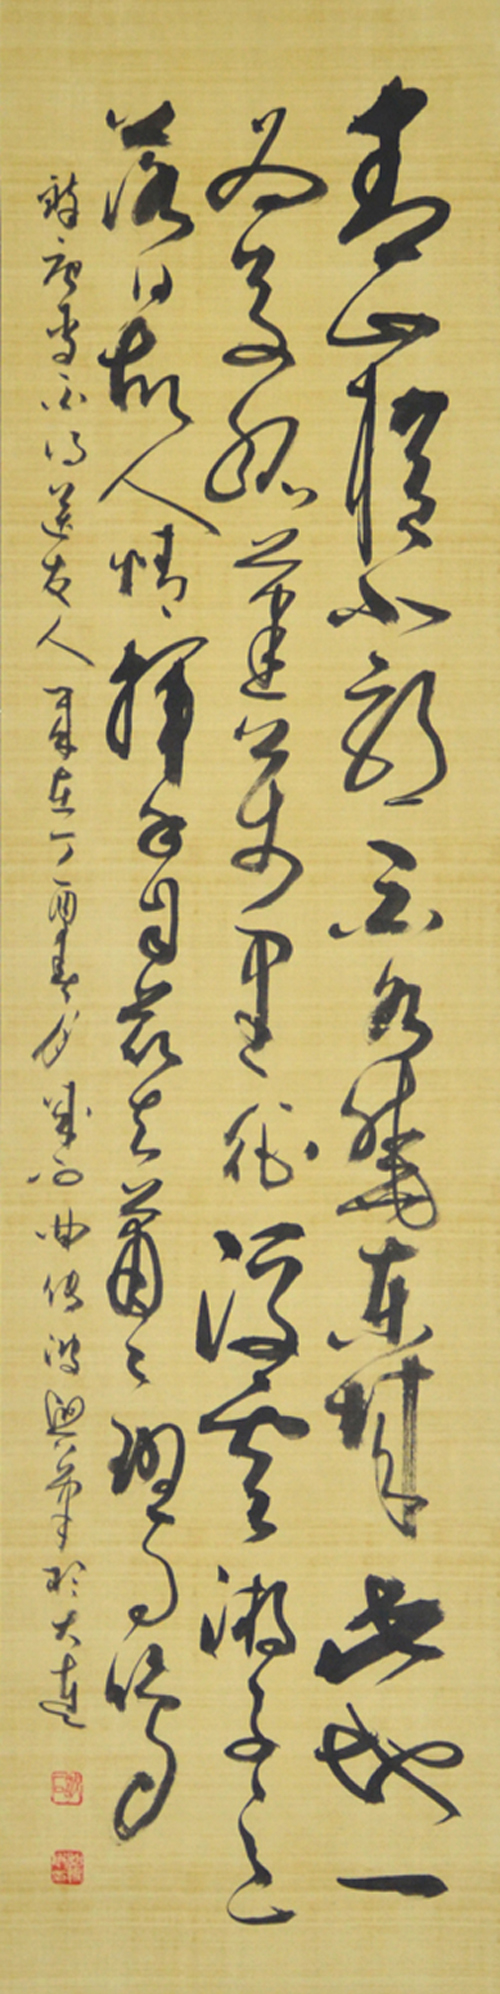 青山橫北郭白水繞東城此地一
為別孤蓬萬里征浮雲游子意
落日故人情揮手自茲去蕭々班馬鳴
唐李白詩送友人 丁酉春月 曲傳波 筆於大連